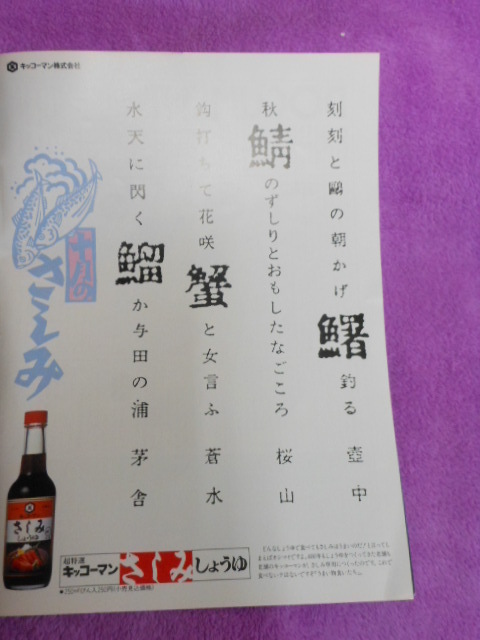 キッコーマン株式会社
刻刻と鷗の朝かげ鱰釣る 壺中
秋鯖のずしりとおもしたなごころ 桜山
鈎打ちて花咲蟹と女言ふ 蒼水
水天に閃く鰡か与田の浦 茅舎
十月の
さしみ
さしみ
しょうゆ
超特選
キッコーマン さしみ しょうゆ